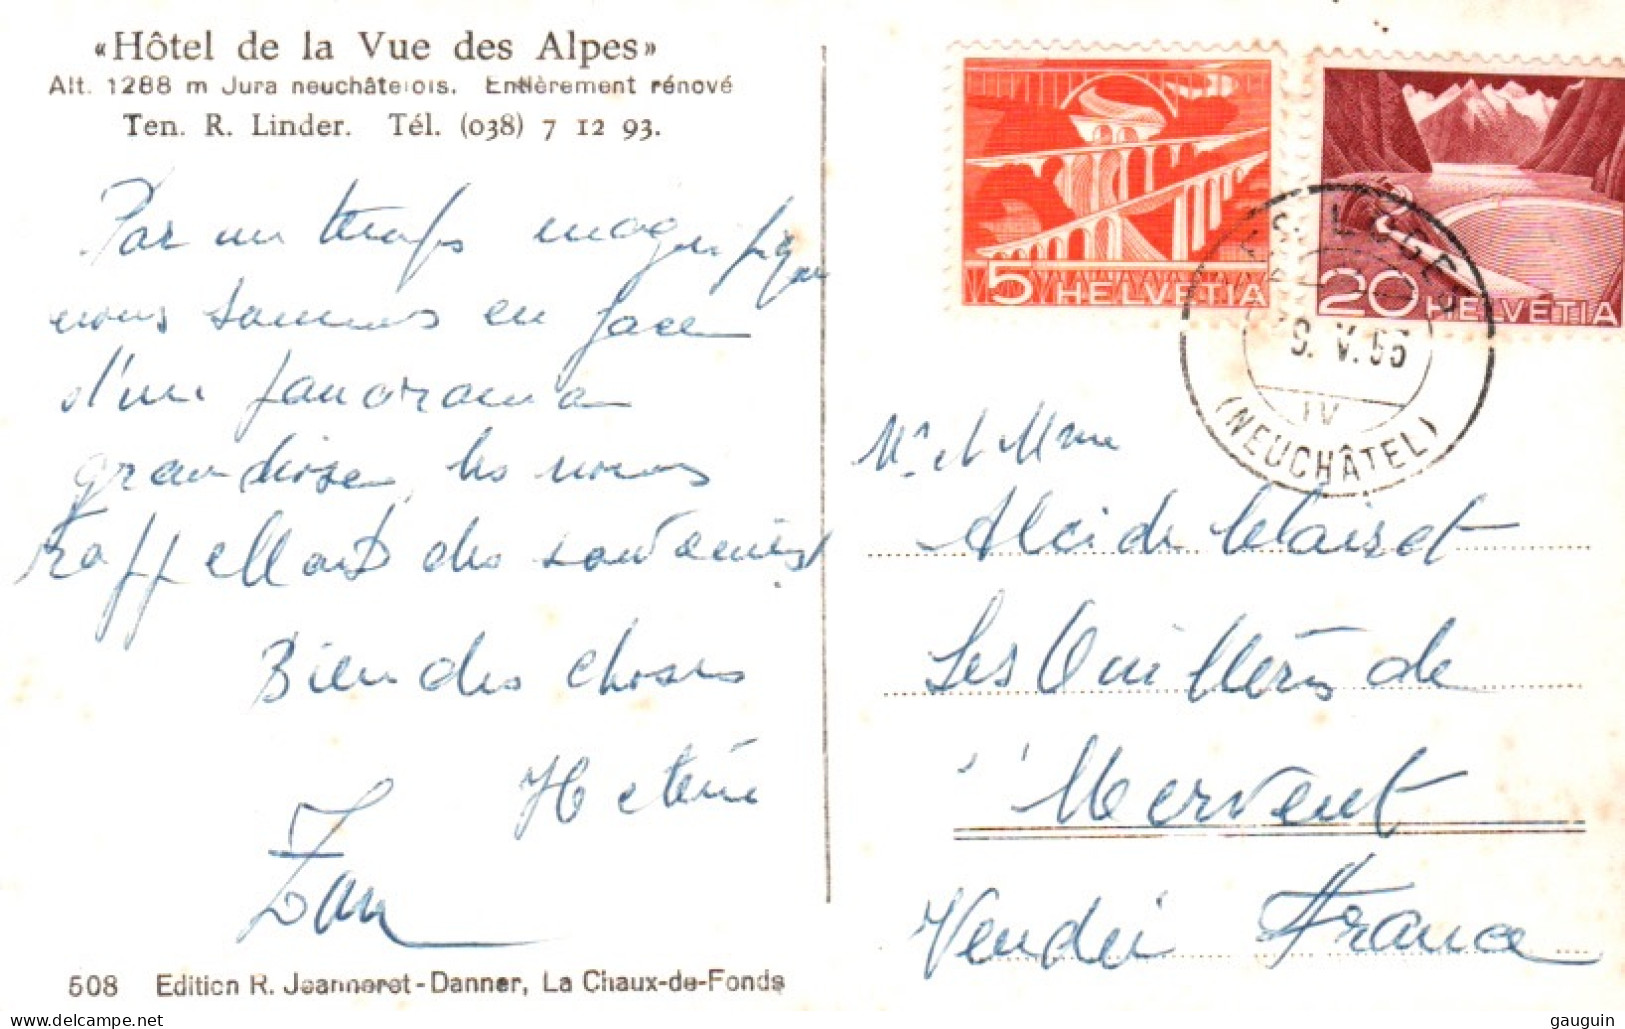 «Hôtel de la Vue des Alpes»
Alt. 1288 m Jura neuchâtelois. Entièrement rénové
Ten. R. Linder. Tél. (038) 7 12 93.
Par un temps magnifique
nous sommes en face
d'un panorama
grandiose, les nous
rappellant des souvenirs
Bien des choses
Jan
508 Edition R. Jeanneret-Danner, La Chaux-de-Fonds
5 HELVETIA
20 HELVETIA
LES LOGES
9. V. 56
IV
(NEUCHÂTEL)
Mr et Mme
Alcide Claiset
Les Ouillères de
Mervent
Vendée France
gauguin
www.delcampe.net